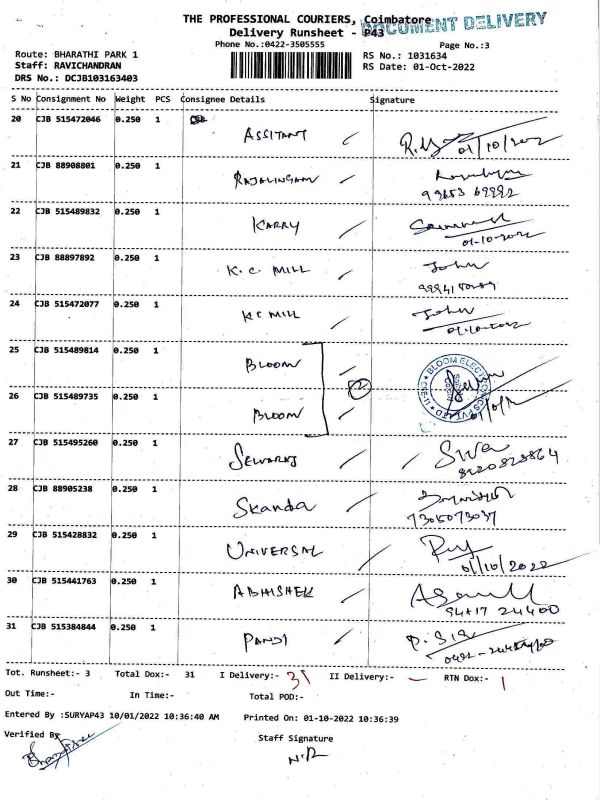 THE PROFESSIONAL COURIERS, Coimbatore
DOCUMENT DELIVERY
Delivery Runsheet - P43
Phone No.:0422-3505555 Page No.:3
Route: BHARATHI PARK 1 RS No.: 1031634
Staff: RAVICHANDRAN RS Date: 01-Oct-2022
DRS No.: DCJB103163403
S No Consignment No Weight PCS Consignee Details Signature
20 CJB 515472046 0.250 1
ASSITANT 01/10/2022
21 CJB 88908801 0.250 1
RAJALINGAM
99653 69992
22 CJB 515489832 0.250 1
KARRY
01-10-2022
23 CJB 88897892 0.250 1
K.C. MILL John
24 CJB 515472077 0.250 1
KC MILL John
25 CJB 515489814 0.250 1
BLOOM
BLOOM ELECTRONICS PVT LTD
2
26 CJB 515489735 0.250 1
BLOOM
27 CJB 515495260 0.250 1
SELVARAJ Swa
8220828864
28 CJB 88905238 0.250 1
Skanda
7305073037
29 CJB 515428832 0.250 1
UNIVERSAL
01/10/2022
30 CJB 515441763 0.250 1
ABHISHEK
94417 24400
31 CJB 515384844 0.250 1
PANDI
Tot. Runsheet:- 3 Total Dox:- 31 I Delivery:- 31 II Delivery:- — RTN Dox:- 1
Out Time:- In Time:- Total POD:-
Entered By :SURYAP43 10/01/2022 10:36:40 AM Printed On: 01-10-2022 10:36:39
Verified By Staff Signature
N.R